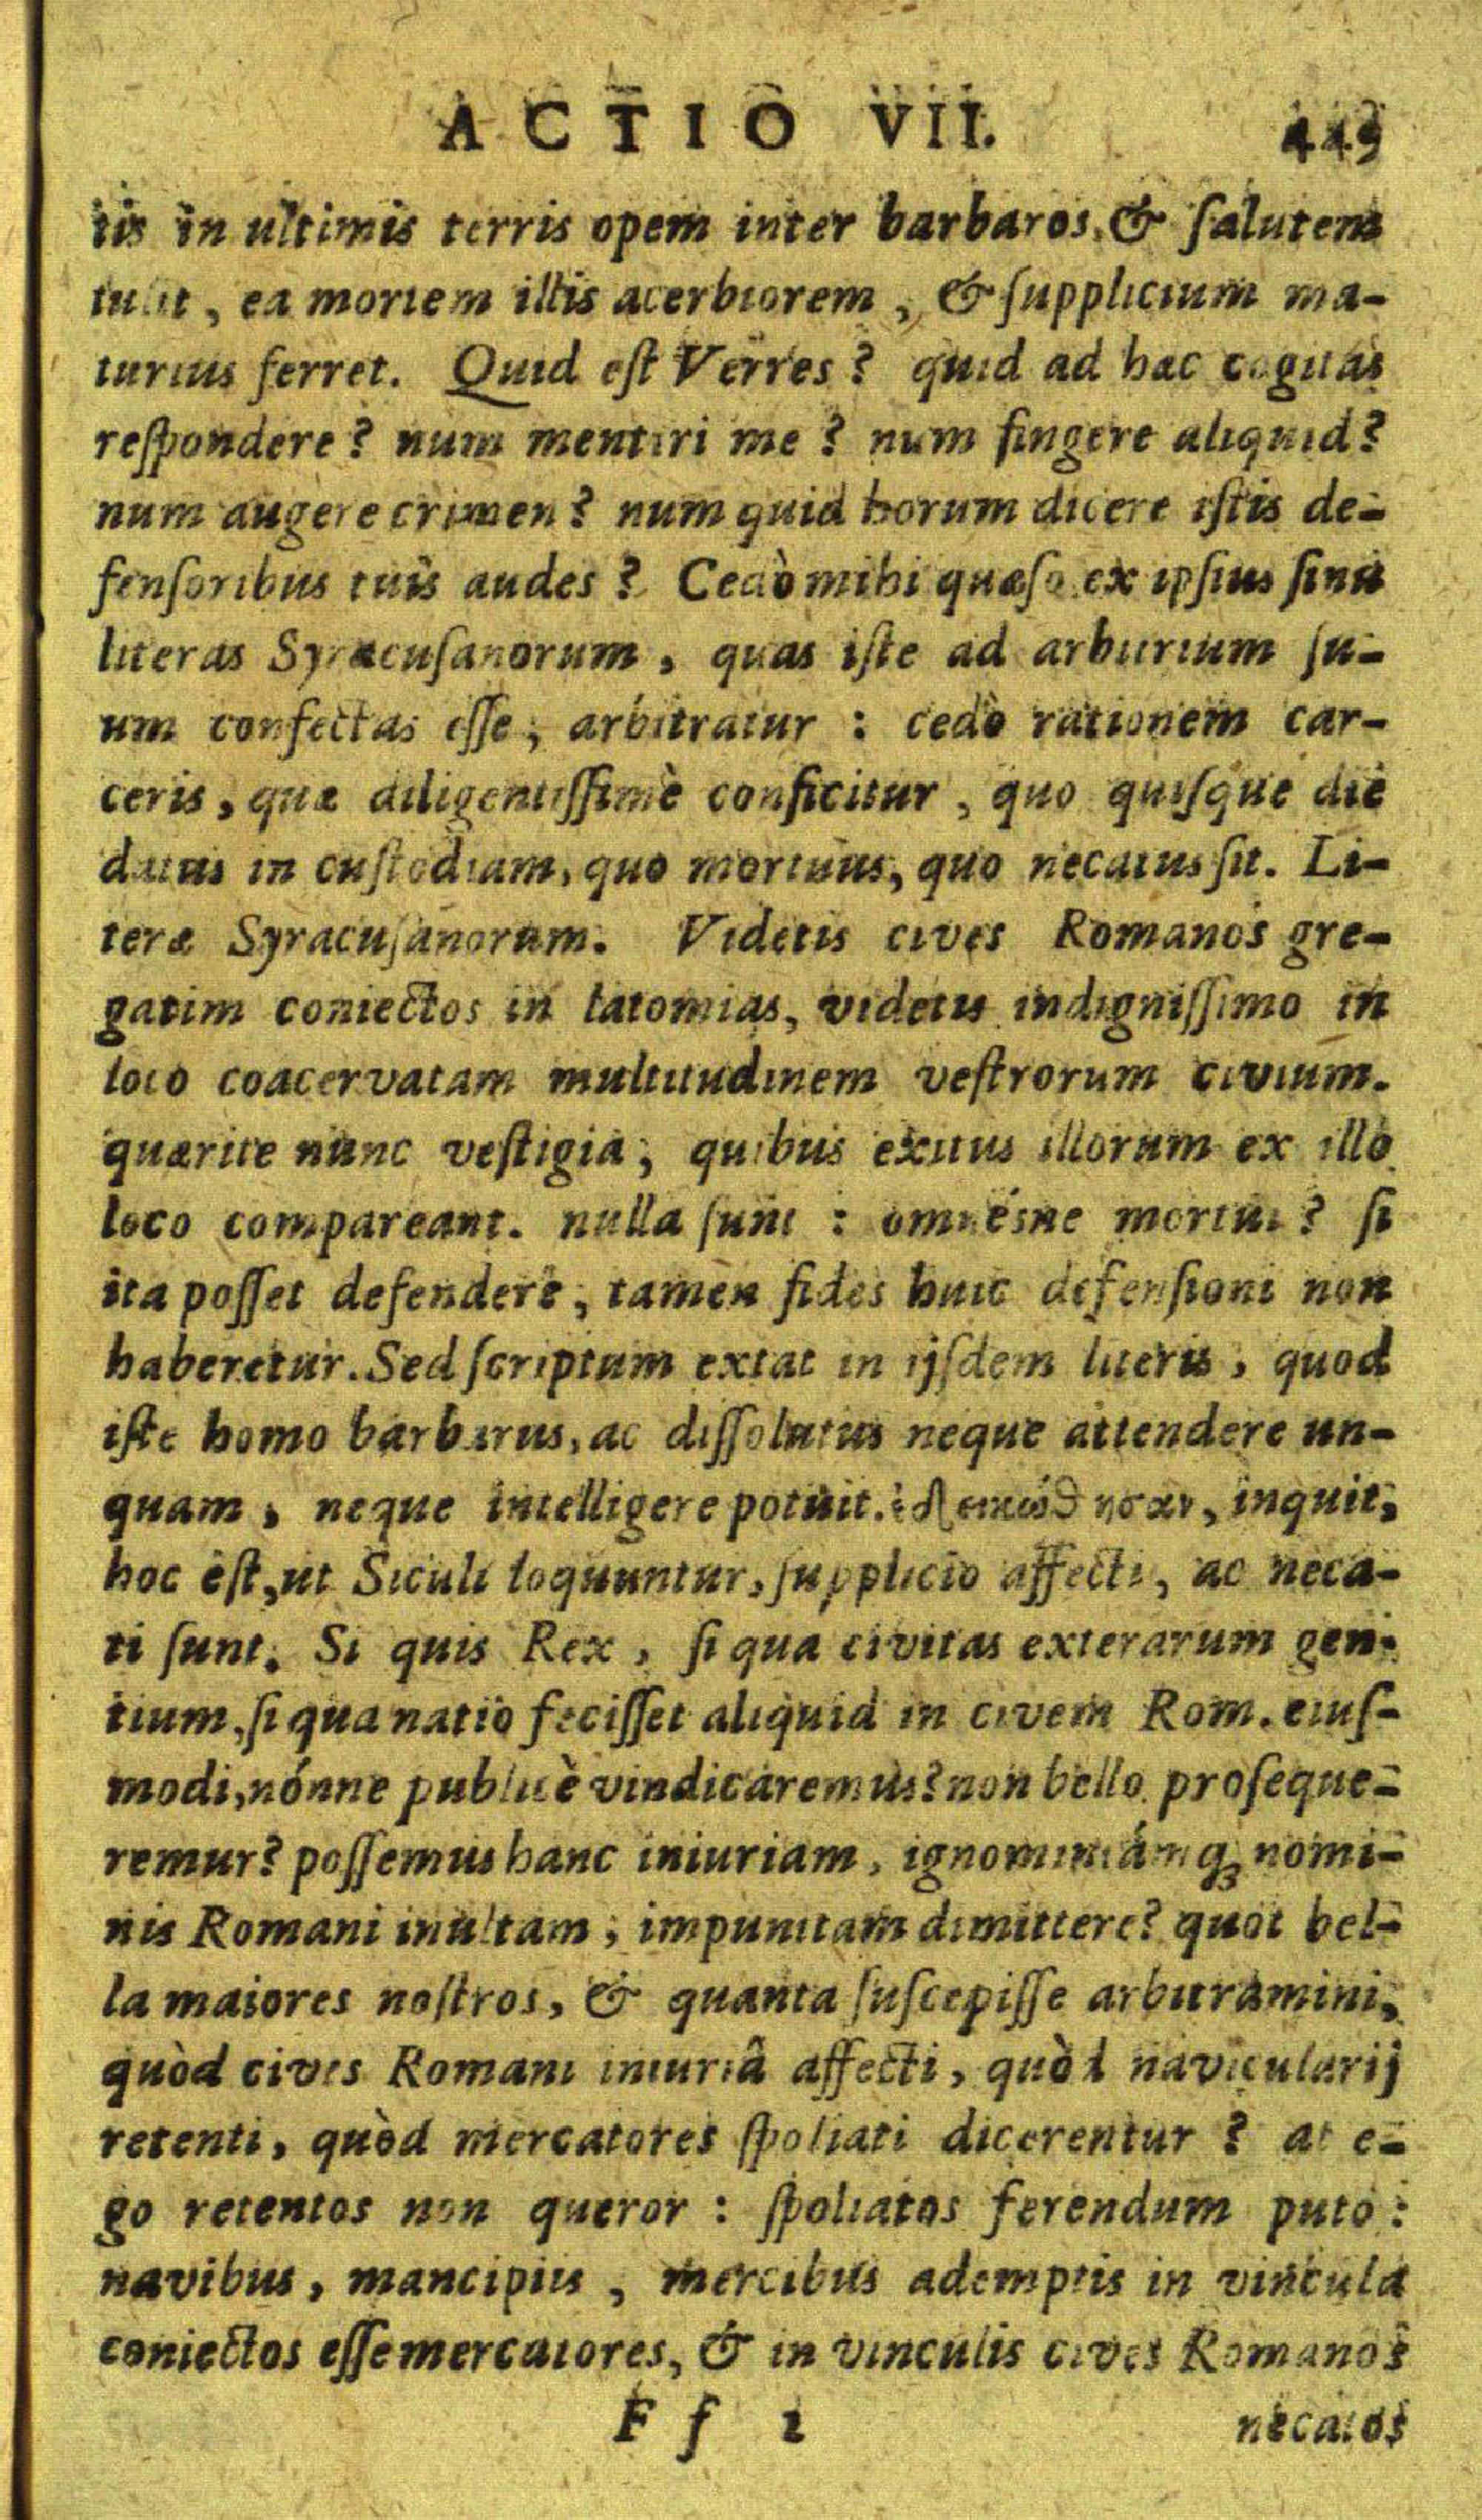 ACTIO VII. 449
tis in ultimis terris opem inter barbaros, & ſalutem
tulit, ea mortem illis acerbiorem, & ſupplicium ma-
turius ferret. Quid eſt Verres? quid ad hæc cogitas
reſpondere? num mentiri me? num fingere aliquid?
num augere crimen? num quid horum dicere iſtis de-
fenſoribus tuis audes? Cedò mihi quæſo ex ipſius ſinu
literas Syracuſanorum, quas iſte ad arbitrium ſu-
um confectas eſſe, arbitratur: cedò rationem car-
ceris, quæ diligentiſſimè conficitur, quo quiſque die
datus in cuſtodiam, quo mortuus, quo necatus ſit. Li-
teræ Syracuſanorum. Videtis cives Romanos gre-
gatim coniectos in latomias, videtis indigniſſimo in
loco coacervatam multitudinem veſtrorum civium.
quærite nunc veſtigia, quibus exitus illorum ex illo
loco compareant. nulla ſunt: omnésne mortui? ſi
ita poſſet defendere, tamen fides huic defenſioni non
haberetur. Sed ſcriptum extat in ijſdem literis, quod
iſte homo barbarus, ac diſſolutus neque attendere un-
quam, neque intelligere potuit. inquit,
hoc eſt, ut Siculi loquuntur, ſupplicio affecti, ac neca-
ti ſunt. Si quis Rex, ſi qua civitas exterarum gen-
tium, ſi qua natio feciſſet aliquid in civem Rom. eiuſ-
modi, nónne publicè vindicaremus? non bello proſeque-
remur? poſſemus hanc iniuriam, ignominiámq; nomi-
nis Romani inultam, impunitam dimittere? quot bel-
la maiores noſtros, & quanta ſuſcepiſſe arbitramini,
quòd cives Romani iniuriâ affecti, quòd navicularij
retenti, quòd mercatores ſpoliati dicerentur? at e-
go retentos non queror: ſpoliatos ferendum puto:
navibus, mancipiis, mercibus ademptis in vincula
coniectos eſſe mercatores, & in vinculis cives Romanos
F f 2 necatos